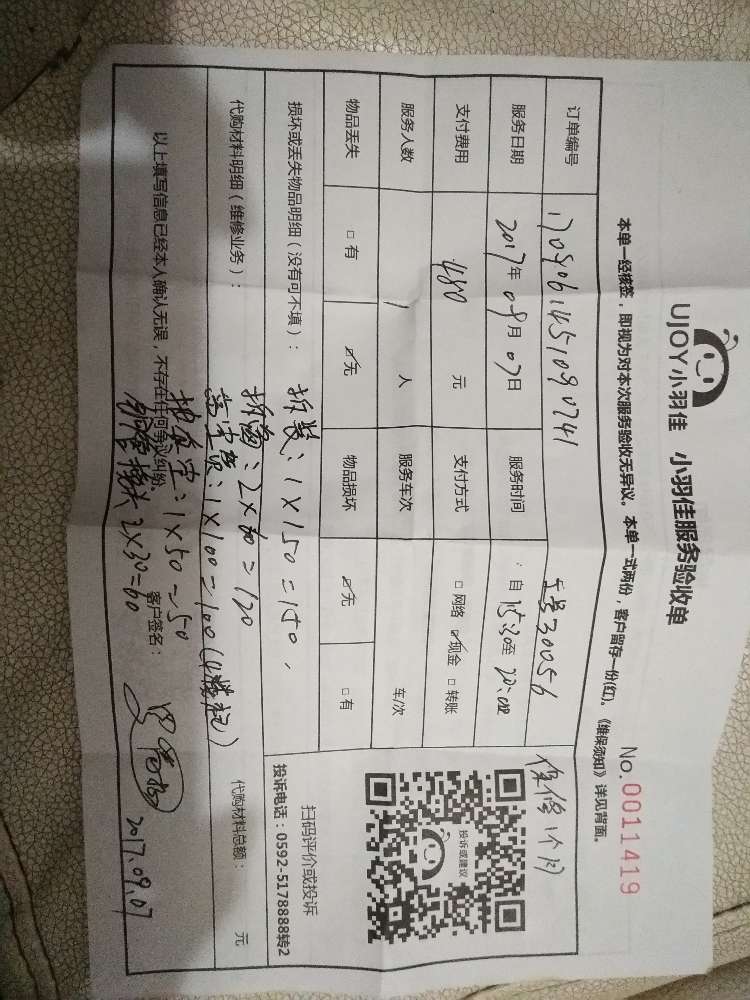 UJOY小羽佳 小羽佳服务验收单
No.0011419
本单一经核签，即视为对本次服务验收无异议。本单一式两份，客户留存一份(红)。《维保须知》详见背面。
订单编号 170906145109 0741 工号30056 保修1个月
服务日期 2017年09月07日 服务时间 自15:30至20:00
支付费用 480元 支付方式 □网络 ☑现金 □转账
服务人数 1人 服务车次 车/次
物品丢失 □有 ☑无 物品损坏 ☑无 □有
投诉或建议
扫码评价或投诉
投诉电话：0592-5178888转2
损坏或丢失物品明细（没有可不填）：
拆装：1×150=150，
代购材料明细（维修业务）：
代购材料总额： 元
2×60=120
1×100=100
抽真空：1×50=50
以上填写信息已经本人确认无误，不存在任何争议纠纷。
铜管接头 2×30=60
客户签名：
2017.09.07